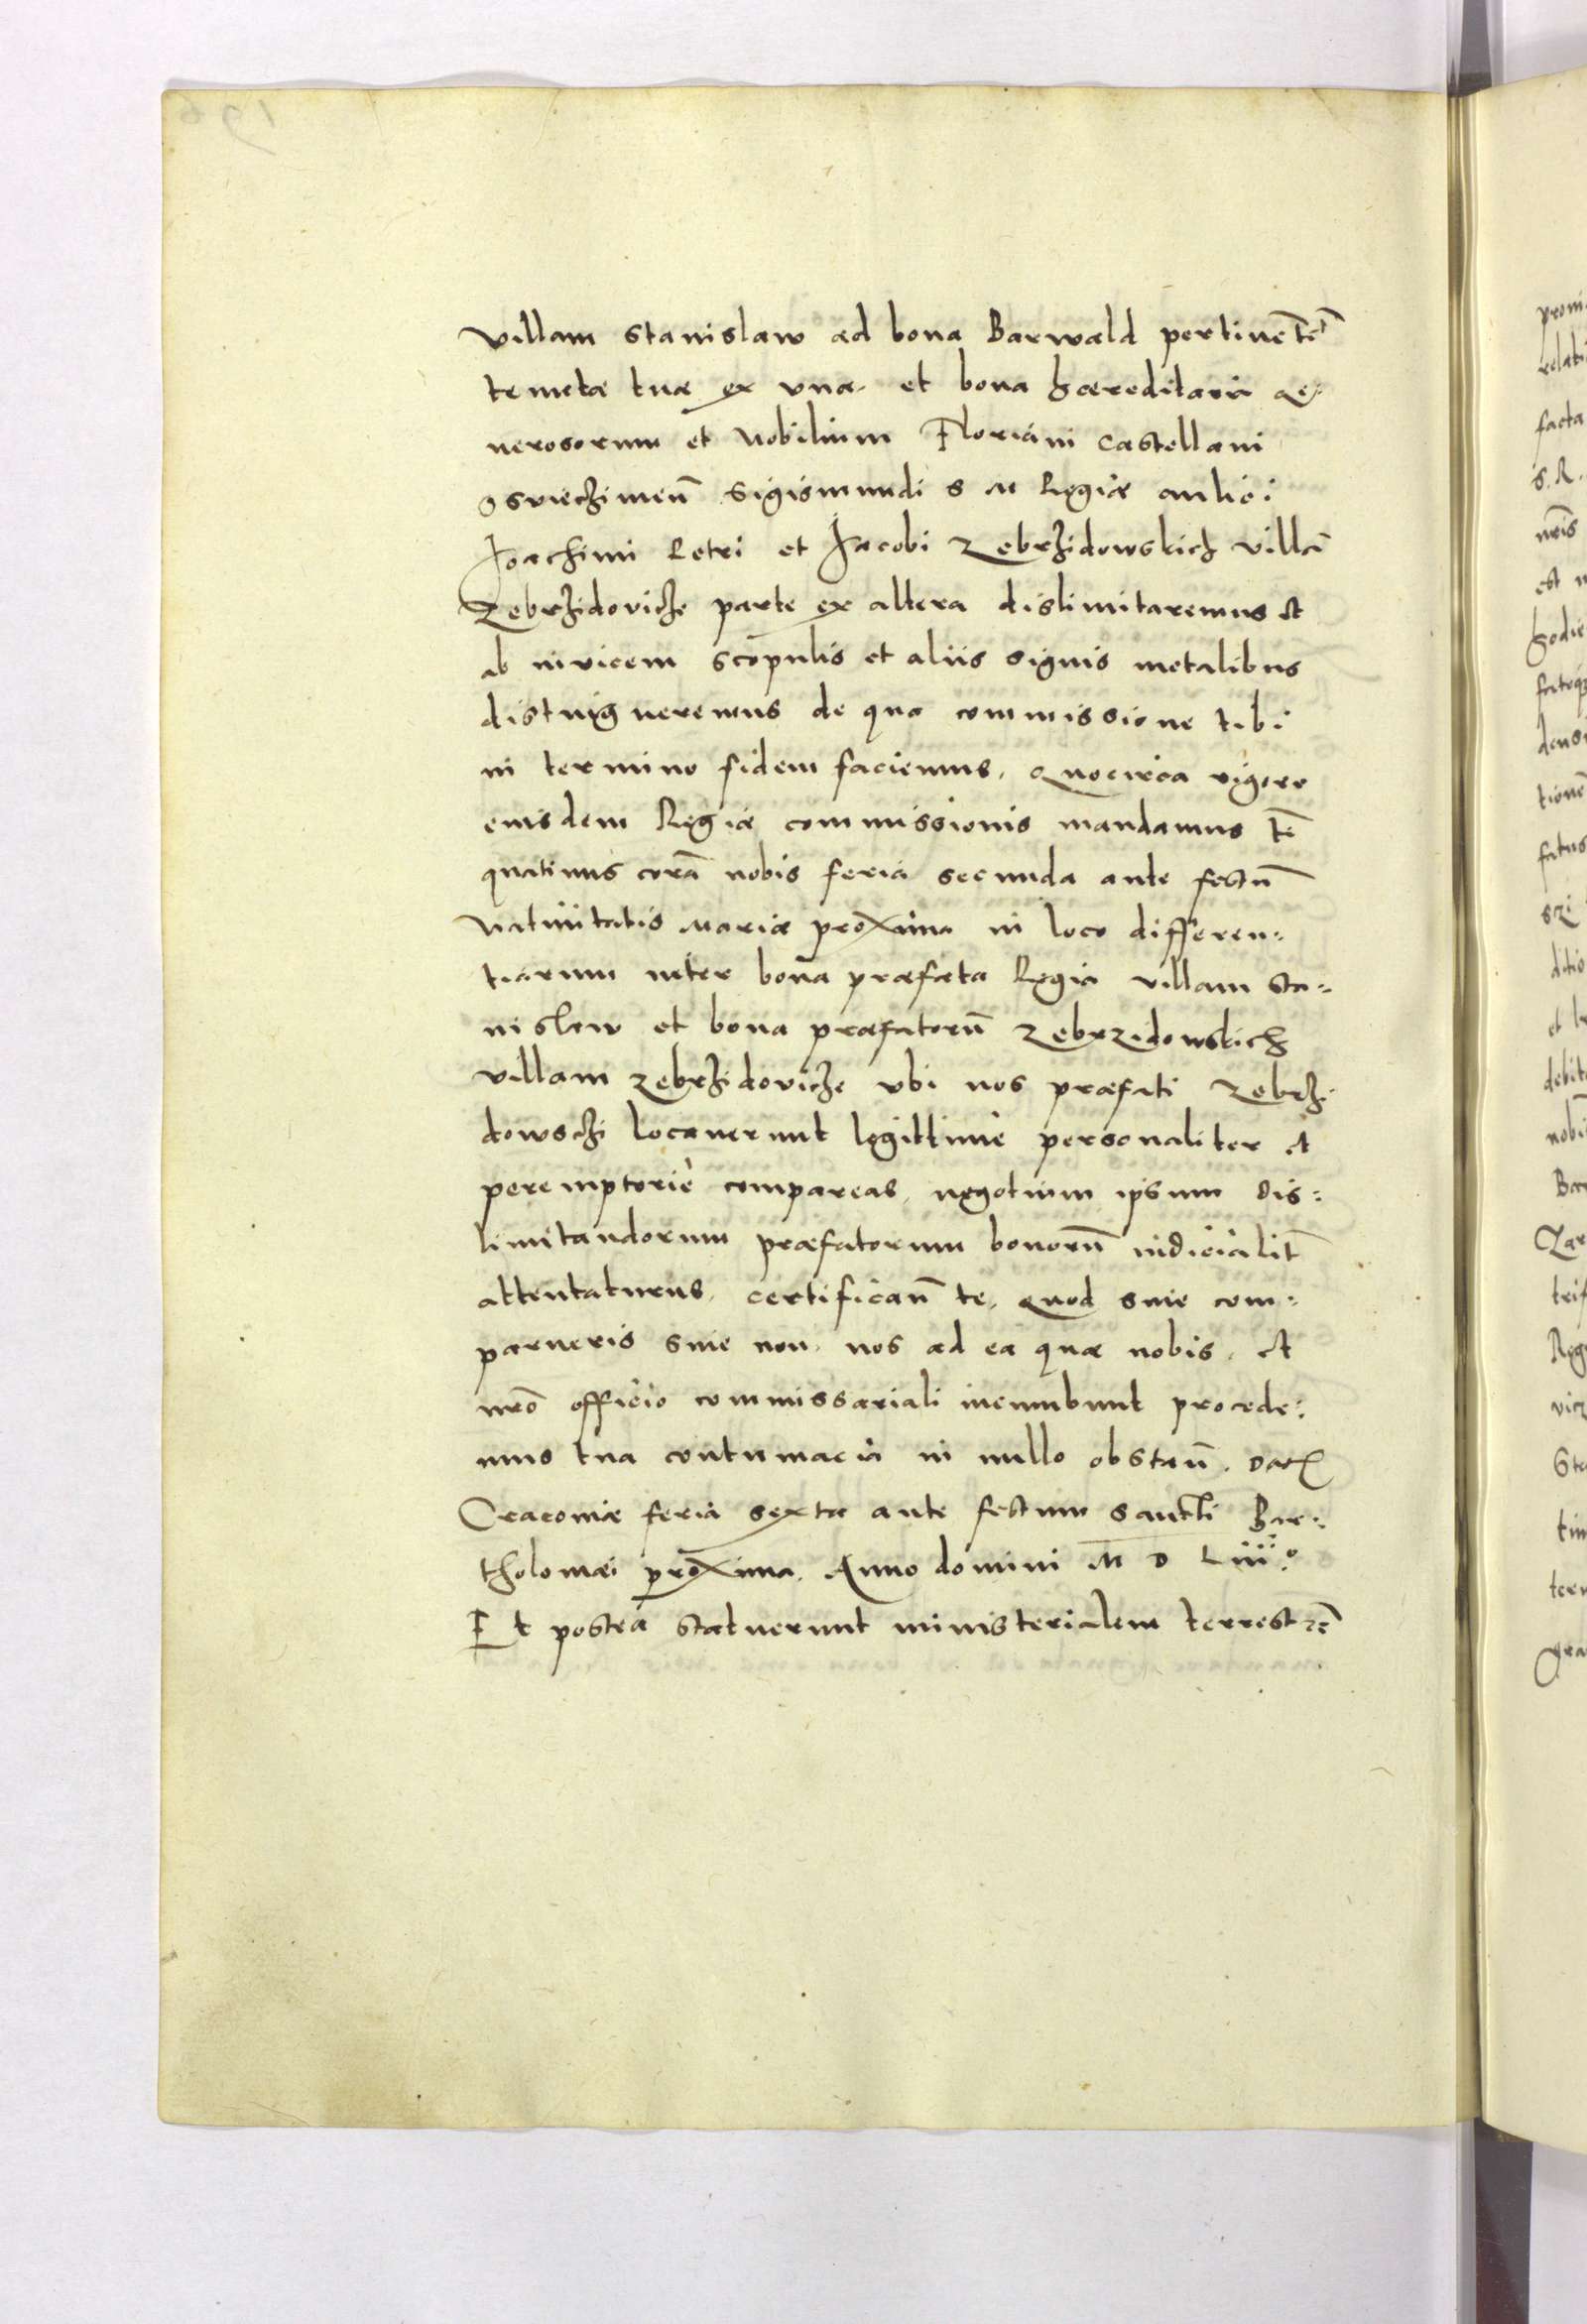 villam Stanislaw ad bona Barwald pertinētē
te metæ tuæ ex vna. et bona hæreditaria Ge:
nerosorum et Nobilium Floriani Castellani
Osviechimeñ Sigismundi S M Regiæ aulici
Joachimi Petri et Jacobi Zebrzidowskich villā
Zebrzidovicze parte ex altera dislimitaremus et
ab invicem scopulis et aliis signis metalibus
distingueremus de qua commissione tibi
in termino fidem faciemus. Quocirca vigore
eiusdem Regiæ commissionis mandamus tē
quatinus corā nobis feria secunda ante festū
Nativitatis Mariæ proxima in loco differen:
tiarum inter bona præfata Regia villam Sta:
nislaw et bona præfatorū Zebrzidowskich
villam Zebrzidovicze vbi nos præfati Zebrzi
dowsczi locaverunt legittimè personaliter et
peremptoriè compareas, negotium ipsum Dis:
limitandorum præfatorum bonorū iudicialit̄
attentaturus. certificañ te, quod sive com:
parueris sive non. nos ad ea quæ nobis. et
nrō officio commissariali incumbunt procede:
mus tua contumacia in nullo obstañ. Dat
Cracoviæ feria sexta ante festum Sancti Bar:
tholomæi proxima. Anno domini M D Liiiº
Et postea statuerunt ministerialem terrestrē